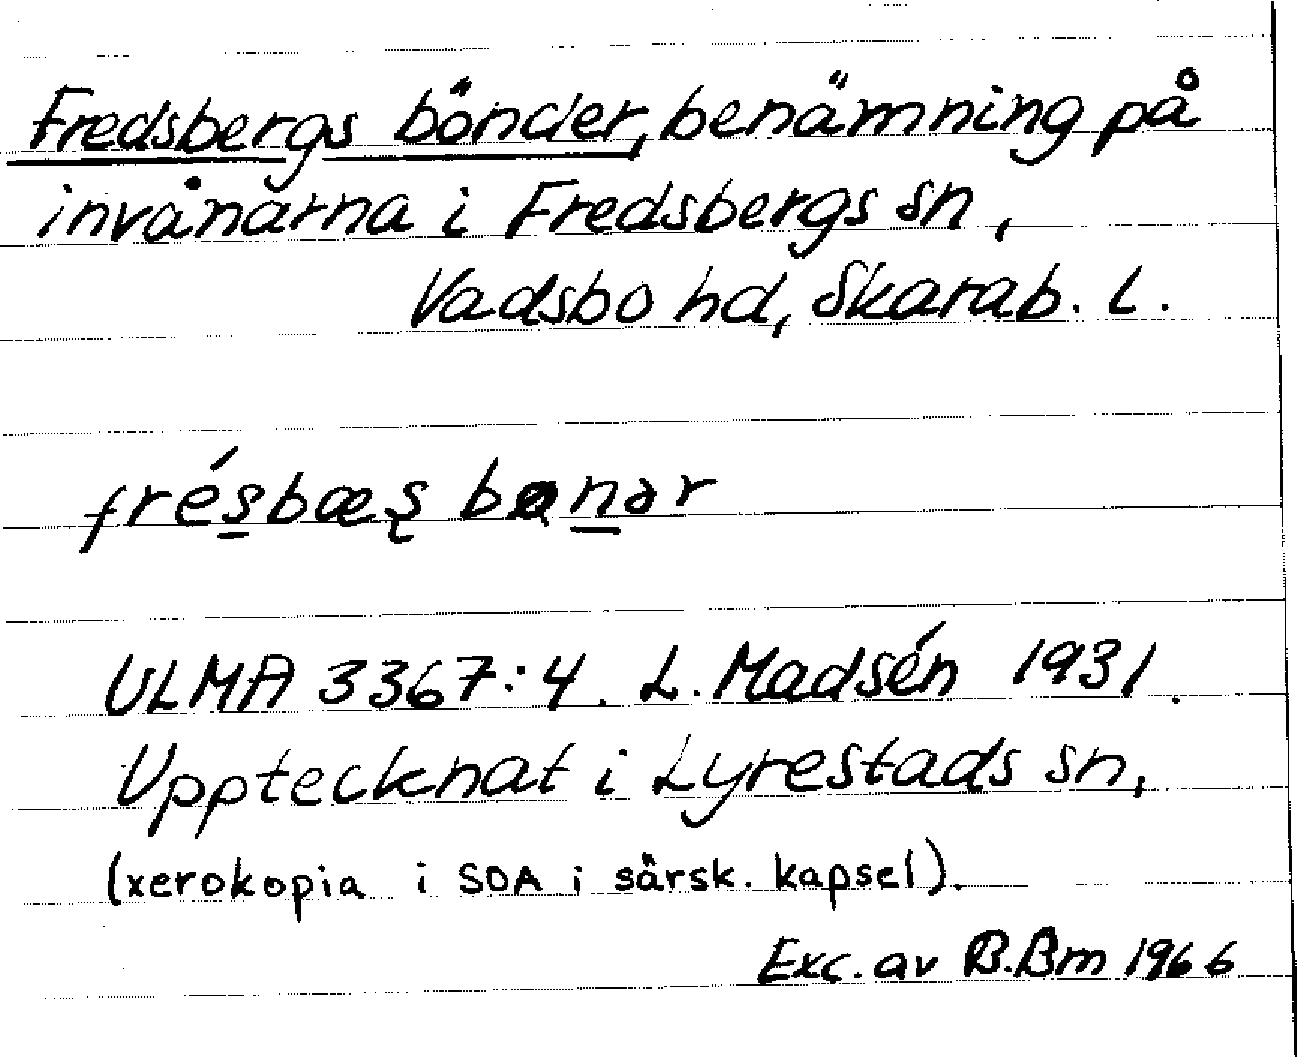 Fredsbergs bönder, benämning på
invånarna i Fredsbergs sn,
Vadsbo hd, Skarab. l.
frésbæs bɵnər
ULMA 3367:4. L. Madsén 1931.
Upptecknat i Lyrestads sn,
(xerokopia i SOA i särsk. kapsel).
Exc. av B.Bm 1966